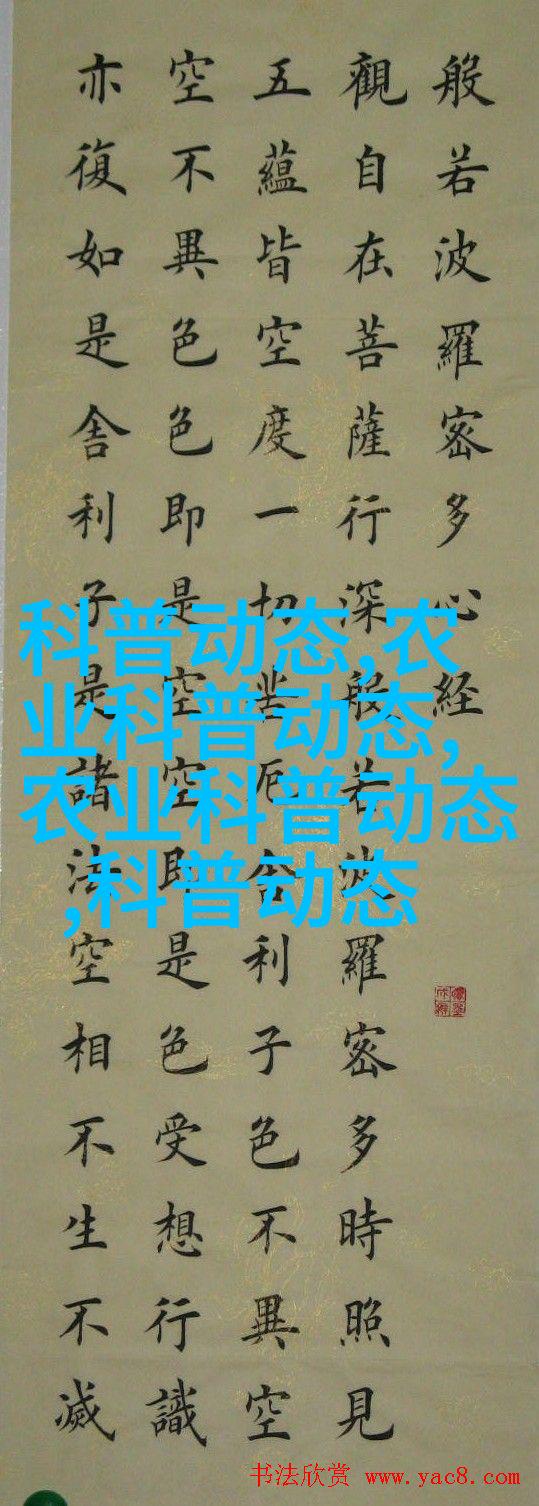 般若波羅密多心経
觀自在菩薩行深般若波羅密多時照見
五蘊皆空度一切苦厄舍利子色不異空
空不異色色即是空空即是色受想行識
亦復如是舍利子是諸法空相不生不滅
科普动态,农
业科普动态,
农业科普动态
,科普动态
书法欣赏 www.yac8.com